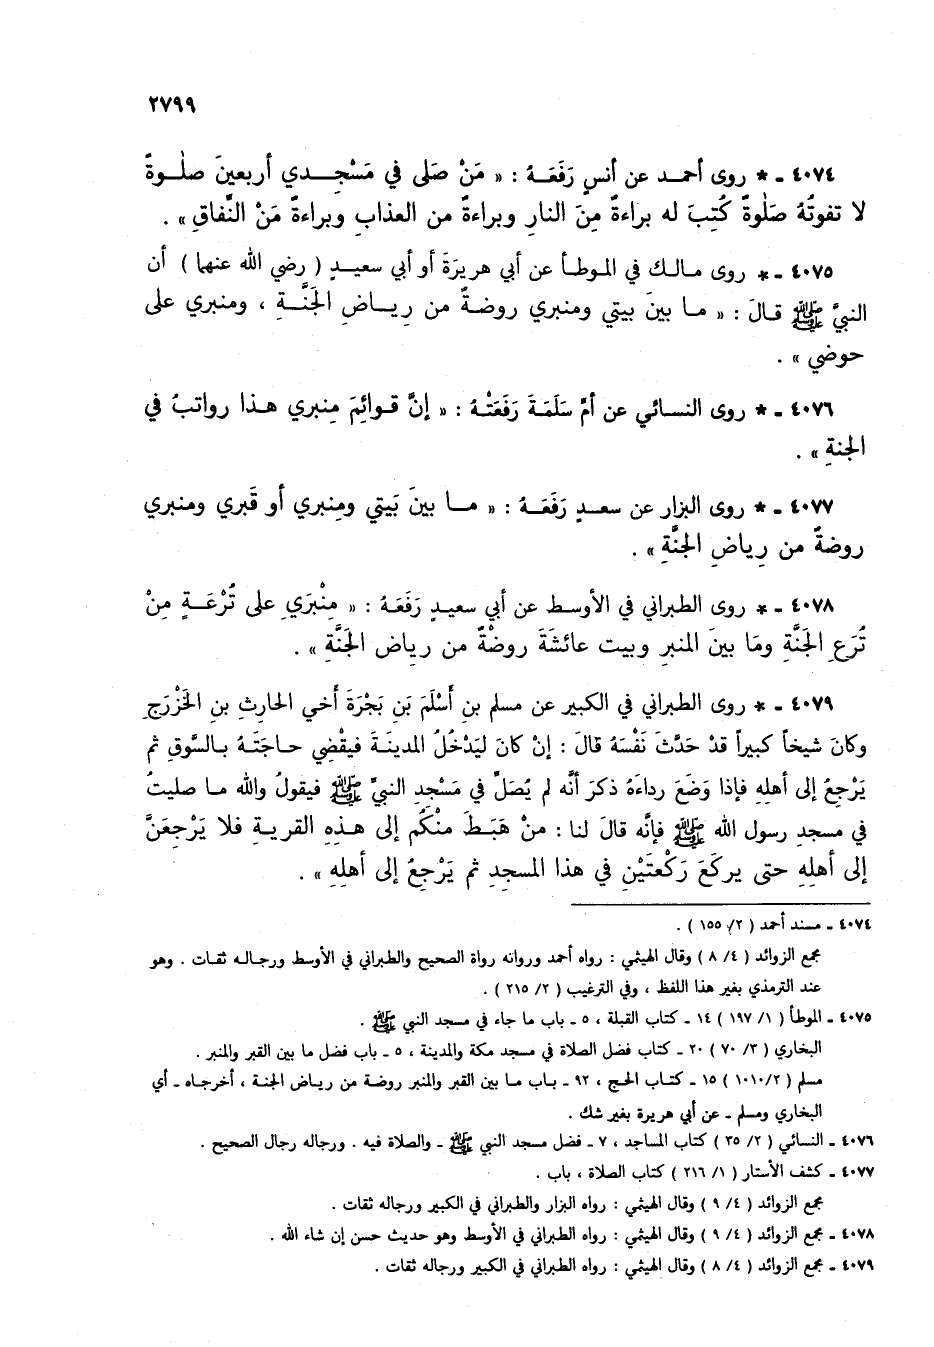 ٢٧٩٩
٤٠٧٤ - * روى أحمد عن أنسٍ رَفَعَهُ : « مَنْ صَلى في مَسْجِدي أربعينَ صلٰوةً
لا تفوتُهُ صَلٰوةٌ كُتِبَ له براءةٌ مِنَ النارِ وبراءةٌ من العذاب وبراءةٌ مَنْ النَّفاقِ » .
٤٠٧٥ - * روى مالك في الموطأ عن أبي هريرَةَ أو أبي سعيدٍ ( رضي الله عنهما ) أن
النبيَّ ﷺ قالَ : « ما بينَ بيتي ومنبري روضةٌ من رِياضِ الجَنَّةِ ، ومنبري على
حوضي » .
٤٠٧٦ - * روى النسائي عن أمِّ سَلَمَةَ رَفَعَتْهُ : « إنَّ قوائِمَ مِنبري هذا رواتبُ في
الجنةِ » .
٤٠٧٧ - * روى البزار عن سعدٍ رَفَعَهُ : « ما بينَ بَيتي ومنبري أو قَبري ومنبري
روضةٌ من رِياضِ الجنَّةِ » .
٤٠٧٨ - * روى الطبراني في الأوسط عن أبي سعيدٍ رَفَعَهُ : « مِنْبَرَي على تُرْعَةٍ مِنْ
تُرَعِ الجَنَّةِ ومَا بينَ المنبرِ وبيت عائشَةَ روضْةٌ من رياض الجَنَّةِ » .
٤٠٧٩ - * روى الطبراني في الكبير عن مسلم بنِ أَسْلَمَ بَنِ بَجْرَةَ أخي الحارثِ بنِ الخَزْرَجِ
وكانَ شيخاً كبيراً قدْ حَدَّثَ نَفْسَهُ قالَ : إنْ كانَ ليَدْخُلُ المدينَةَ فيقْضِي حاجَتَهُ بالسَّوقِ ثم
يَرْجِعُ إلى أهلِهِ فإذا وَضَعَ رداءَهُ ذكرَ أنَّه لم يُصَلِّ في مَسْجدِ النبيِّ ﷺ فيقولُ والله ما صليتُ
في مسجدِ رسول الله ﷺ فإنَّه قالَ لنا : منْ هَبَطَ منْكُم إلى هذِهِ القريةِ فلا يَرْجعَنَّ
إلى أهلِهِ حتى يركَعَ رَكْعتَيْنِ في هذا المسجدِ ثم يَرْجِعُ إلى أهلِهِ » .
٤٠٧٤ - مسند أحمد ( ٢/ ١٥٥ ) .
مجمع الزوائد ( ٤/ ٨ ) وقال الهيثمي : رواه أحمد وروانه رواة الصحيح والطبراني في الأوسط ورجاله ثقات . وهو
عند الترمذي بغير هذا اللفظ ، وفي الترغيب ( ٢/ ٢١٥ ) .
٤٠٧٥ - الموطأ ( ١/ ١٩٧ ) ١٤ - كتاب القبلة ، ٥ - باب ما جاء في مسجد النبي ﷺ .
البخاري ( ٣/ ٧٠ ) ٢٠ - كتاب فضل الصلاة في مسجد مكة والمدينة ، ٥ - باب فضل ما بين القبر والمنبر .
مسلم ( ١٠١٠/٢ ) ١٥ - كتاب الحج ، ٩٢ - باب ما بين القبر والمنبر روضة من رياض الجنة ، أخرجاه - أي
البخاري ومسلم - عن أبي هريرة بغير شك .
٤٠٧٦ - النسائي ( ٢/ ٣٥ ) كتاب المساجد ، ٧ - فضل مسجد النبي ﷺ - والصلاة فيه . ورجاله رجال الصحيح .
٤٠٧٧ - كشف الأستار ( ١/ ٢١٦ ) كتاب الصلاة ، باب .
مجمع الزوائد ( ٤/ ٩ ) وقال الهيثمي : رواه البزار والطبراني في الكبير ورجاله ثقات .
٤٠٧٨ - مجمع الزوائد ( ٤/ ٩ ) وقال الهيثمي : رواه الطبراني في الأوسط وهو حديث حسن إن شاء الله .
٤٠٧٩ - مجمع الزوائد ( ٤/ ٨ ) وقال الهيثمي : رواه الطبراني في الكبير ورجاله ثقات .